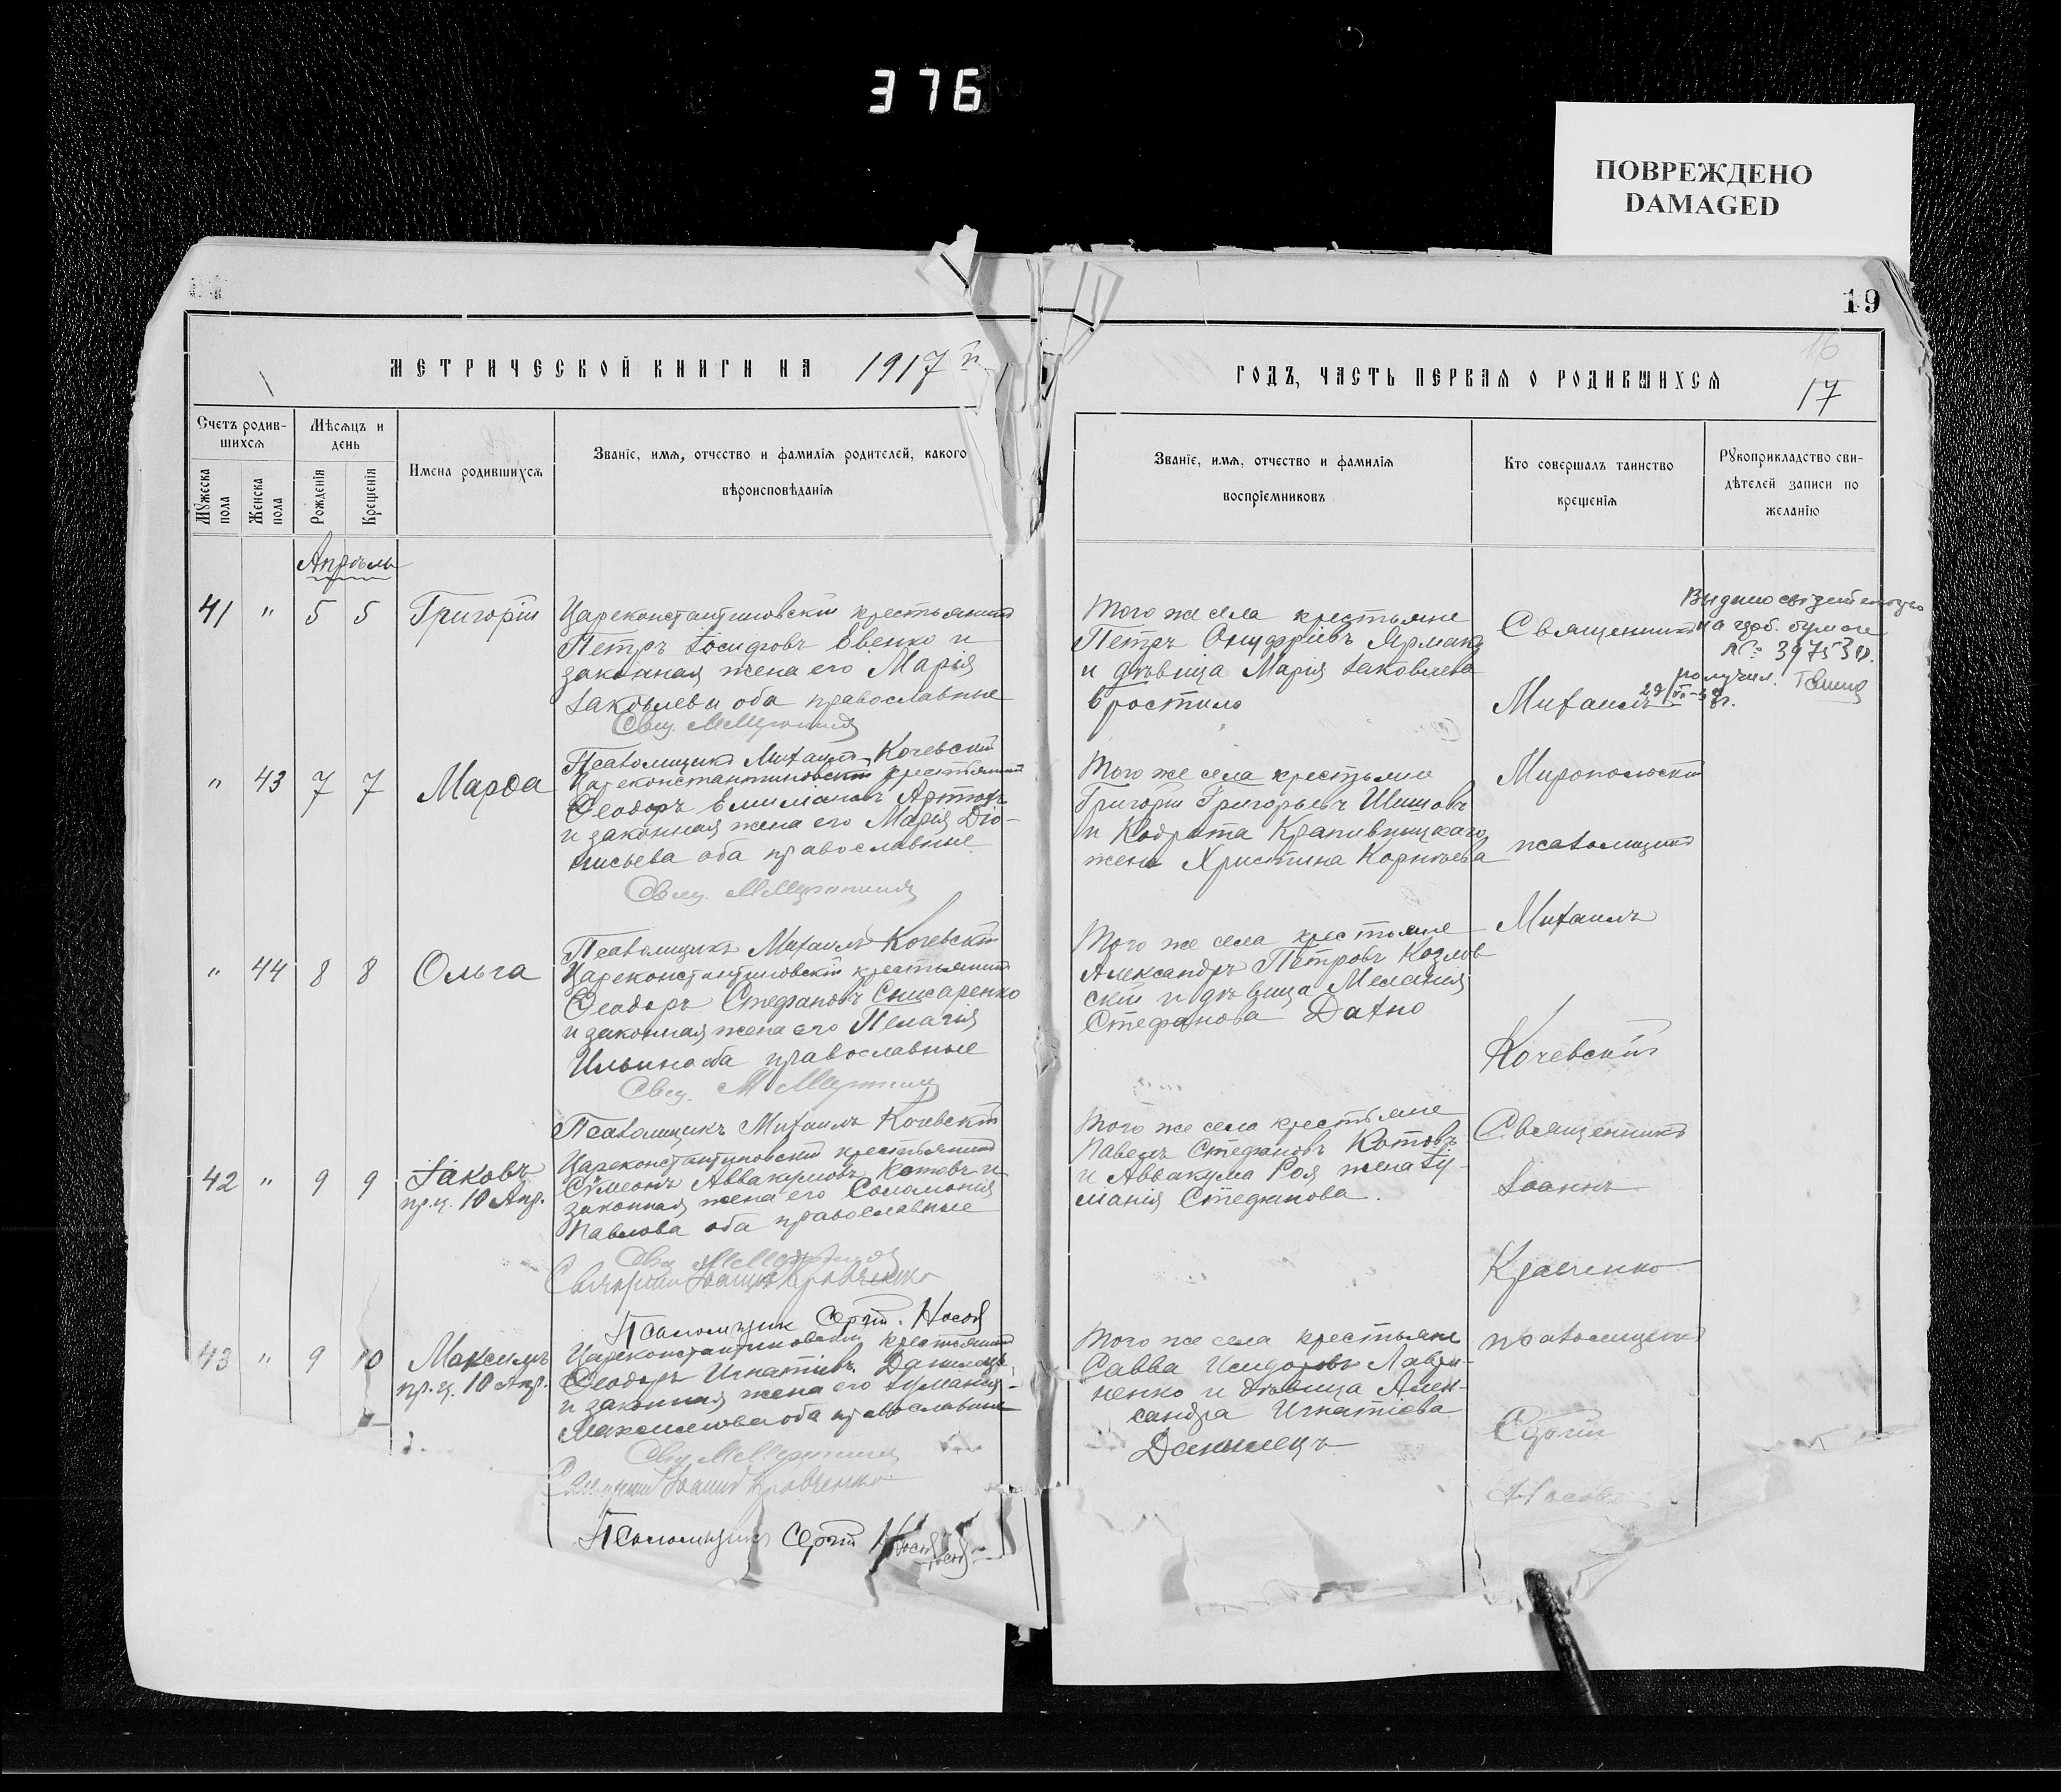 376
ПОВРЕЖДЕНО
DAMAGED
19
16
17
МЕТРИЧЕСКОЙ КНИГИ НА 1917
ГОДЪ, ЧАСТЬ ПЕРВАЯ О РОДИВШИХСЯ
Счетъ родив-
шихся
Мужеска
пола
Женска
пола
Мѣсяцъ и
день
Рожденія
Крещенія
Имена родившихся
Званіе, имя, отчество и фамилія родителей, какого
вѣроисповѣданія
Званіе, имя, отчество и фамилія
воспріемниковъ
Кто совершалъ таинство
крещенія
Рукоприкладство сви-
дѣтелей записи по
желанію
Апрѣль
41 " 5 5 Григорій
Цареконстантиновскій крестьянинъ
Петръ Іосифовъ Евенко и
законная жена его Марія
Іаковлева оба православные
Свящ.
Псаломщикъ Михаилъ Кочевскій
Того же села крестьяне
Петръ Онуфріевъ Ярмакъ
и дѣвица Марія Іаковлева
Священникъ
Михаилъ
на гроб.
№ 397530.
получил.
" 43 7 7 Марѳа
Цареконстантиновскій крестьянинъ
Ѳеодоръ Емиліановъ
и законная жена его Марія Діо-
нисьева оба православные
Свящ.
Псаломщикъ Михаилъ Кочевскій
Того же села крестьяне
Григорій Григорьевъ Шишовъ
и Кодрата Крапивницкаго
жена Христина Корнѣева
Миропольскій
псаломщикъ
Михаилъ
" 44 8 8 Ольга
Цареконстантиновскій крестьянинъ
Ѳеодоръ Стефановъ Снисаренко
и законная жена его Пелагія
Ильина оба православные
Свящ.
Псаломщикъ Михаилъ Кочевскій
Того же села крестьяне
Александръ Петровъ Козлов
скій и дѣвица Меланія
Стефанова Дахно
Кочевскій
42 " 9 9 Іаковъ
пр. ц. 10 Апр.
Цареконстантиновскій крестьянинъ
Сѵмеонъ Аввакумовъ Котовъ и
законная жена его Соломонія
Павлова оба православные
Свящ.
Священникъ Іоаннъ Кравченко
Псаломщик Сергій Носов
Того же села крестьяне
Павелъ Стефановъ Котовъ
и Аввакума Роя жена Іу-
ліанія Стефанова.
Священникъ
Іоаннъ
Кравченко
43 " 9 10 Максимъ
пр. ц. 10 Апр.
Цареконстантиновскій крестьянинъ
Ѳеодоръ Игнатіевъ Данилецъ
и законная жена его Іуліанія
оба православные
Свящ.
Священникъ Іоаннъ Кравченко
Псаломщикъ Сергій Носов
Того же села крестьяне
Савва Исидоровъ Лаври-
ненко и дѣвица Алек-
сандра Игнатіова
Данилецъ
псаломщикъ
Сергій
Носовъ